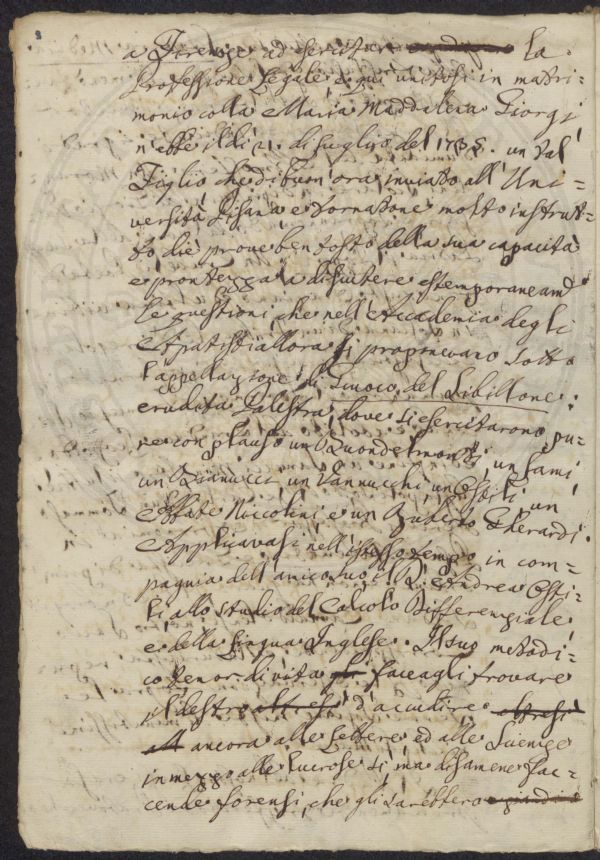 a Firenze ad esercitare la
Professione Legale e qui unitosi in matri=
monio colla Maria Maddalena Giorgi
n'ebbe il dì 21. di Luglio del 1735. un tal
Figlio che di buon ora inviato all'Uni=
versità Pisana e tornatone molto instrut=
to die prove ben tosto della sua capacità
e prontezza a discutere estemporaneamte
le questioni, che nell'Accademia degli
Apatisti allora si proponevano sotto
l'appellazione di Giuoco del Sibillone.
erudita Palestra, dove si esercitarono, pu=
re con plauso un Buondelmonti, un Lami
un Rianucci un Vannucchi, un
Abbate Niccolini e un Ruberto Gherardi.
Applicavasi nell'istesso tempo in com=
pagnia dell'amico suo il D. Andrea
allo studio del Calcolo Differenziale
e della Lingua Inglese. Il suo metodi=
co tenor di vita faceagli trovare
il destro altresì d'accudire altresì
all ancora alle Lettere ed alle Scienze
in mezzo alle lucrose sì, ma disamene fac=
cende forensi, che gli sarebbero